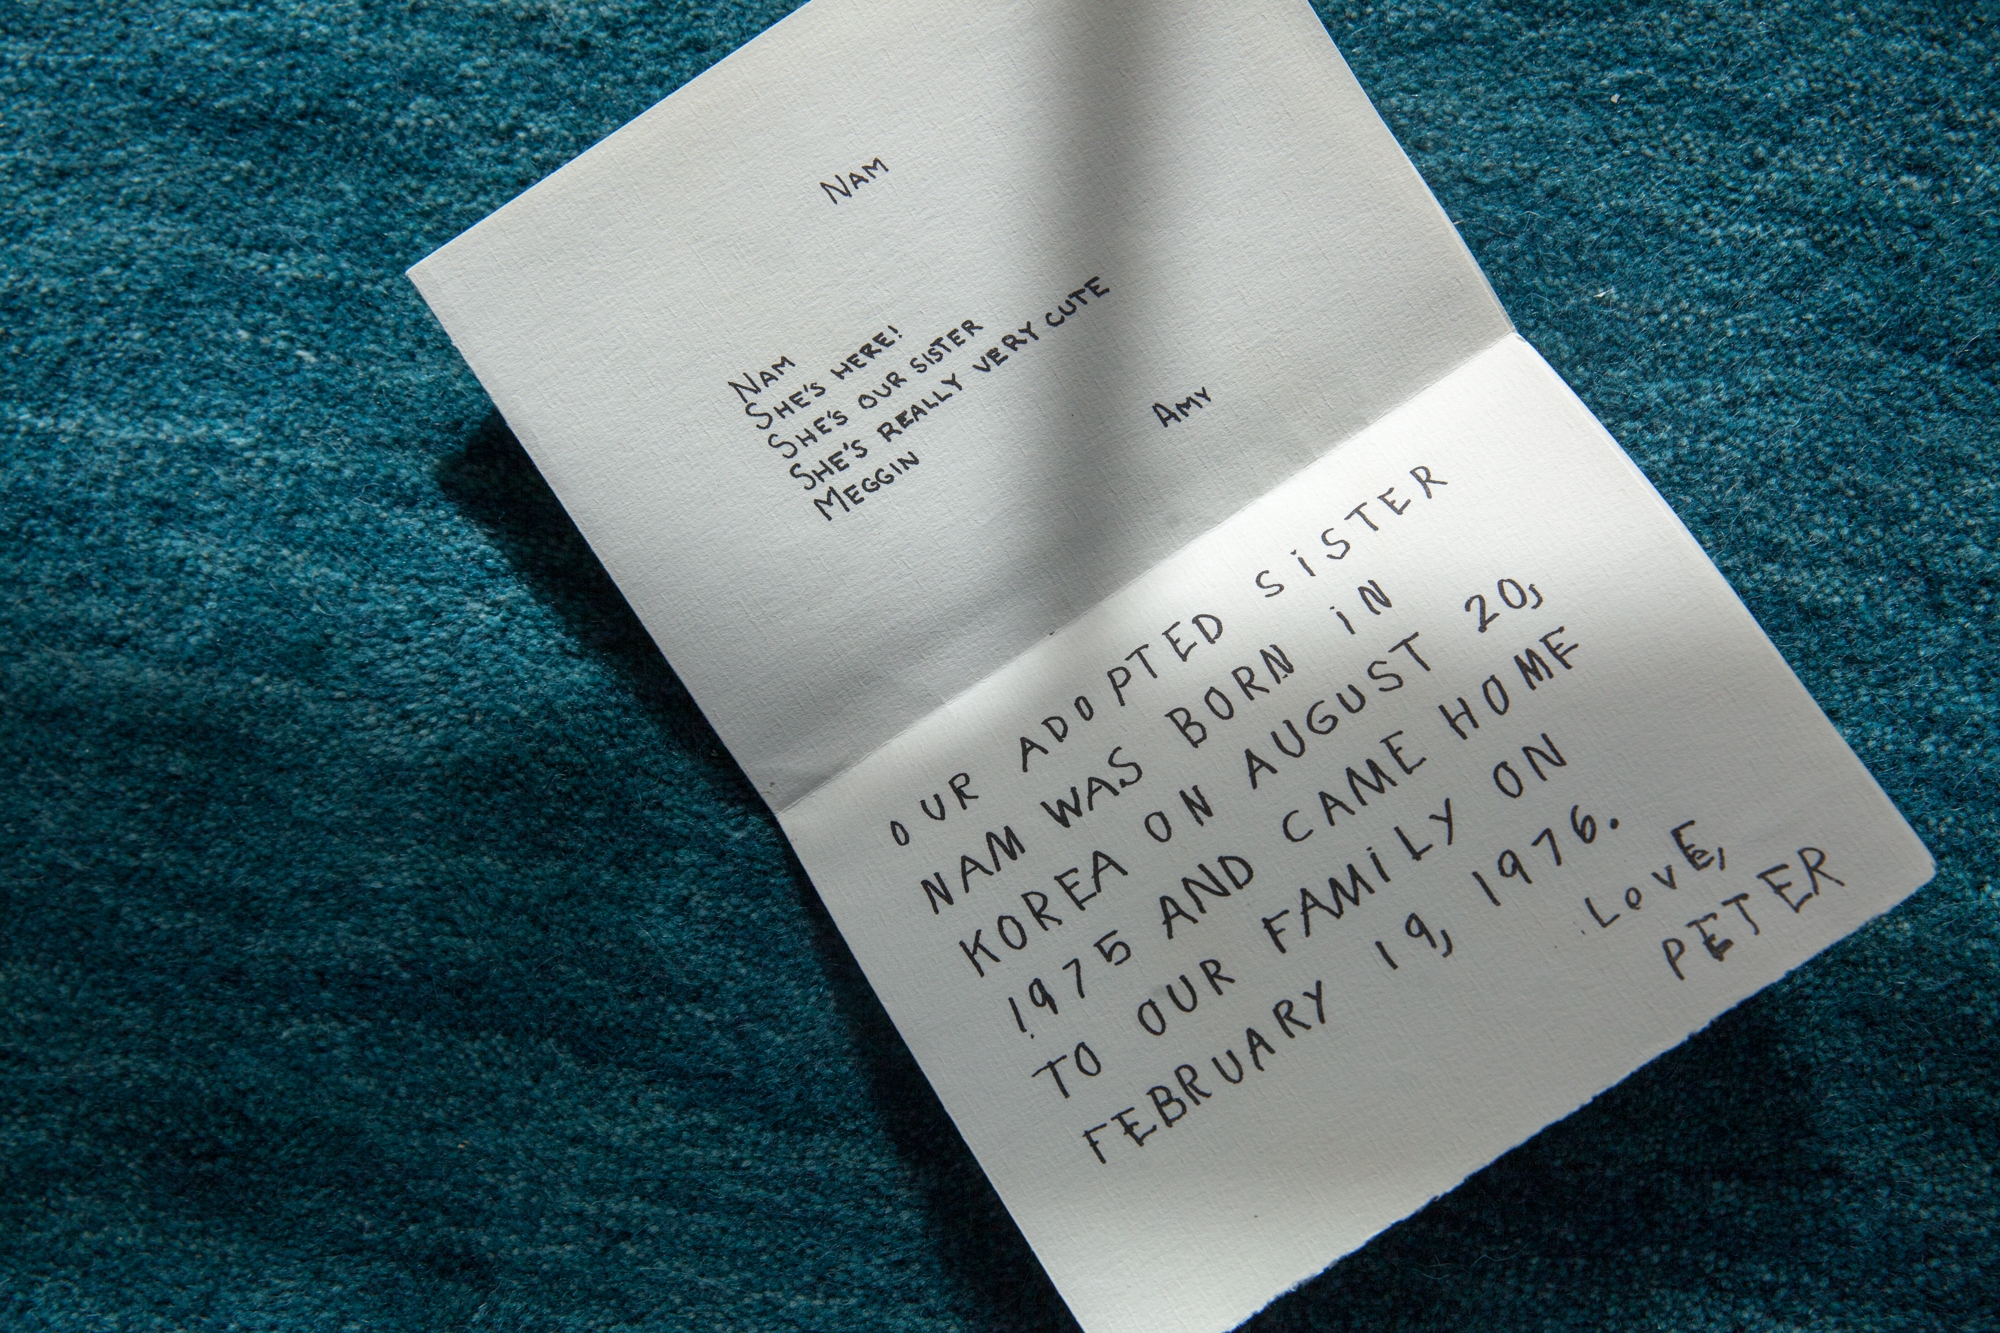 NAM
NAM
SHE'S HERE!
SHE'S OUR SISTER
SHE'S REALLY VERY CUTE
MEGGIN
AMY
OUR ADOPTED SiSTER
NAM WAS BORN iN
KOREA ON AUGUST 20,
1975 AND CAME HOME
TO OUR FAMiLY ON
FEBRUARY 19, 1976.
LOVE,
PETER